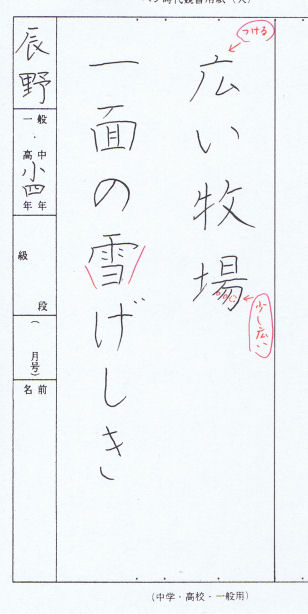 つける
広い牧場
少し広い
一面の雪げしき
辰野
一般・高中小四年年
級
段
(月号)
名前
(中学・高校・一般用)